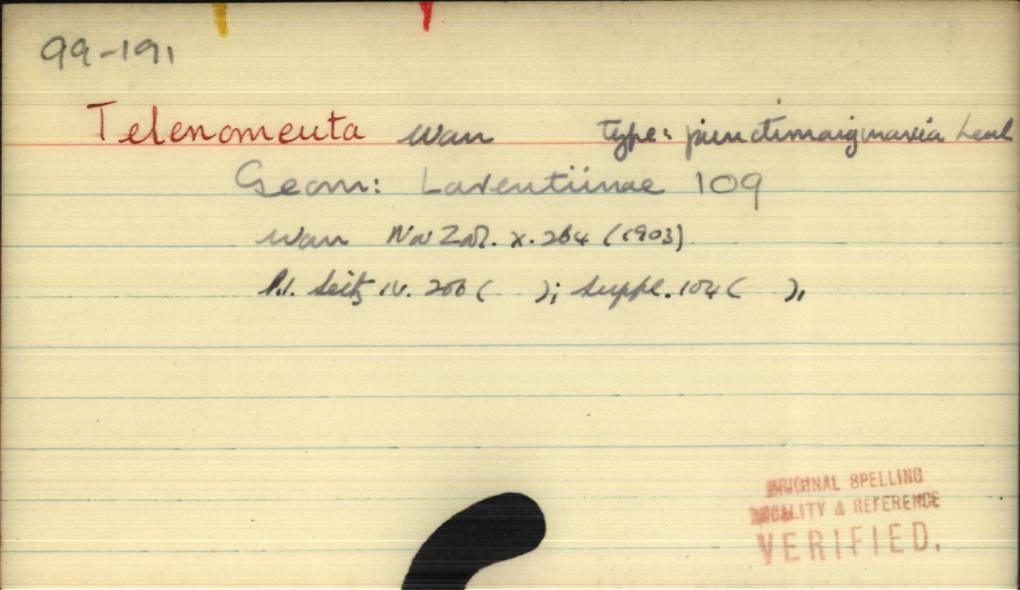 99-191
Telenomeuta Warr Type: punctimarginaria Leech
Geom: Larentiinae 109
Warr Nov Zool. X. 264 (1903)
Seitz IV. 206 ( ); Suppl. 104 ( ),
ORIGINAL SPELLING
LOCALITY & REFERENCE
VERIFIED.